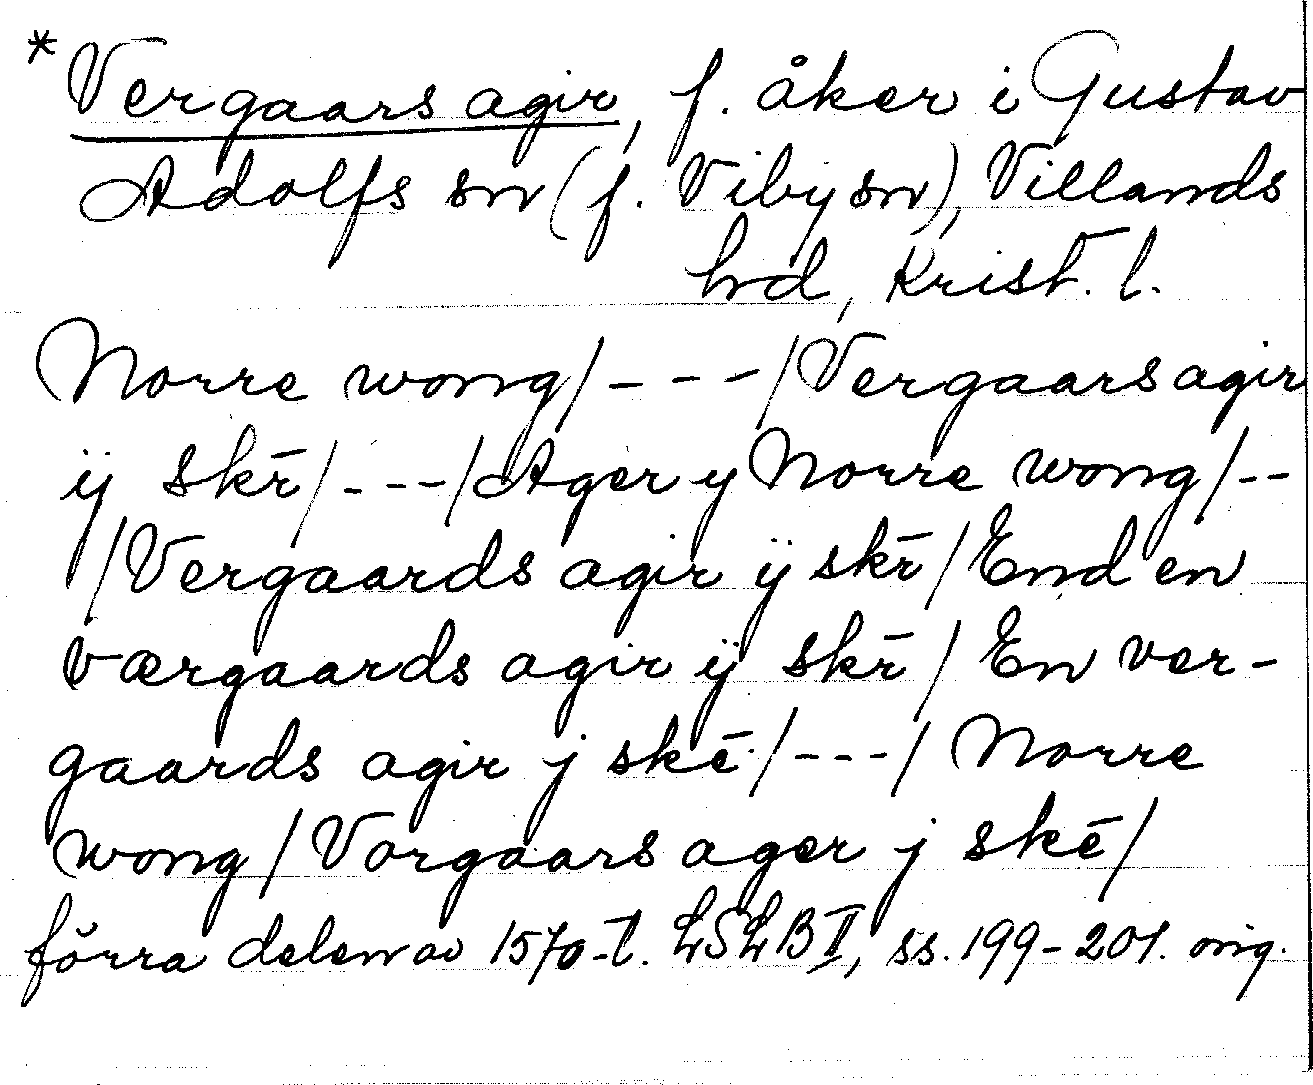 * Vergaars agir, f. åker i Gustav
Adolfs sn (f. Viby sn), Villands
hd, Krist. l.
Norre wong / - - - / Vergaars agir
ij skr̄ / - - - / Ager y Norre wong / - -
/ Vergaards agir ÿ skr̄ / End en
værgaards agir ij skr̄ / En ver-
gaards agir j skē / - - - / Norre
wong / Vorgaars ager j skē /
förra delen av 1570-t. LSLB II, ss. 199-201. orig.